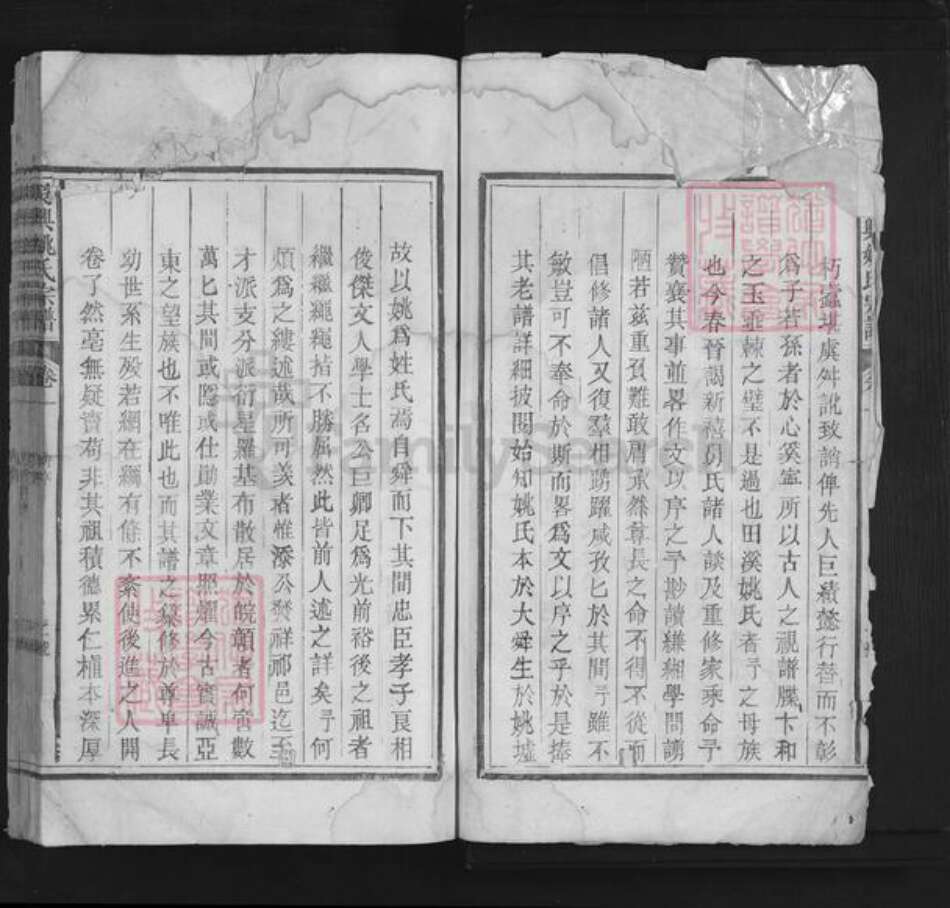 朽蠹堪虞舛訛致誚俾先人巨績懿行替而不彰
爲子若孫者於心奚寧所以古人之視譜牒卞和
之玉垂棘之璧不是過也田溪姚氏者予之母族
也今春晉謁新禧舅氏諸人談及重修家乘命予
贊襄其事並畧作文以序之予尠讀縑緗學問謭
陋若茲重負難敢膺承然尊長之命不得不從而
倡修諸人又復羣相踴躍咸孜匕於其間予雖不
敏豈可不奉命於斯而畧爲文以序之乎於是捧
其老譜詳細披閱始知姚氏本於大舜生於姚墟
故以姚爲姓氏焉自舜而下其間忠臣孝子良相
俊傑文人學士名公巨卿足爲光前裕後之祖者
繼繼繩繩指不勝屈然此皆前人述之詳矣予何
煩爲之縷述哉所可羡者惟添公發祥祁邑迄玉
才派支分派衍星羅基布散居於皖贛者何啻數
萬匕其間或隱或仕勛業文章照耀今古實誠亞
東之望族也不唯此也而其譜之纂修於尊卑長
幼世系生殁若網在綱有條不紊使後進之人開
卷了然毫無疑竇苟非其祖積德累仁植本深厚
姚氏宗譜
卷
FamilySearch